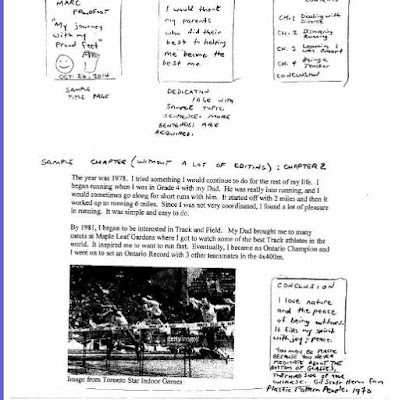 MARC
PROUDFOOT
"My journey
with my
Proud feet"
OCT. 26, 2014
SAMPLE
TITLE PAGE
I would thank
my parents
who did their
best to helping
me become the
best me.
DEDICATION
PAGE WITH
SAMPLE TOPIC
SENTENCE. MORE
SENTENCES ARE
REQUIRED.
CH. 1 Dealing with
Divorce
CH. 2 Discovering
Running
CH. 3 Learning I
was Smart
CH. 4 Being a
Teacher
CONCLUSION
SAMPLE CHAPTER (WITHOUT A LOT OF EDITING): CHAPTER 2
The year was 1978. I tried something I would continue to do for the rest of my life. I
began running when I was in Grade 4 with my Dad. He was really into running, and I
would sometimes go along for short runs with him. It started off with 2 miles and then it
worked up to running 6 miles. Since I was not very coordinated, I found a lot of pleasure
in running. It was simple and easy to do.
By 1981, I began to be interested in Track and Field. My Dad brought me to many
meets at Maple Leaf Gardens where I got to watch some of the best Track athletes in the
world. It inspired me to want to run fast. Eventually, I became an Ontario Champion and
I went on to set an Ontario Record with 3 other teammates in the 4x400m.
gettyimages
Image from Toronto Star Indoor Games
CONCLUSION
I love nature
and the peace
of being outdoors.
It fills my spirit
with joy & peace.
YOU MAY BE PLASTIC
BECAUSE YOU NEVER
MEDITATE ABOUT THE
BOTTOM OF GLASSES,
THE THIRD SIDE OF YOUR
UNIVERSE. Gil Scott Heron from
Plastic Pattern People. 1970